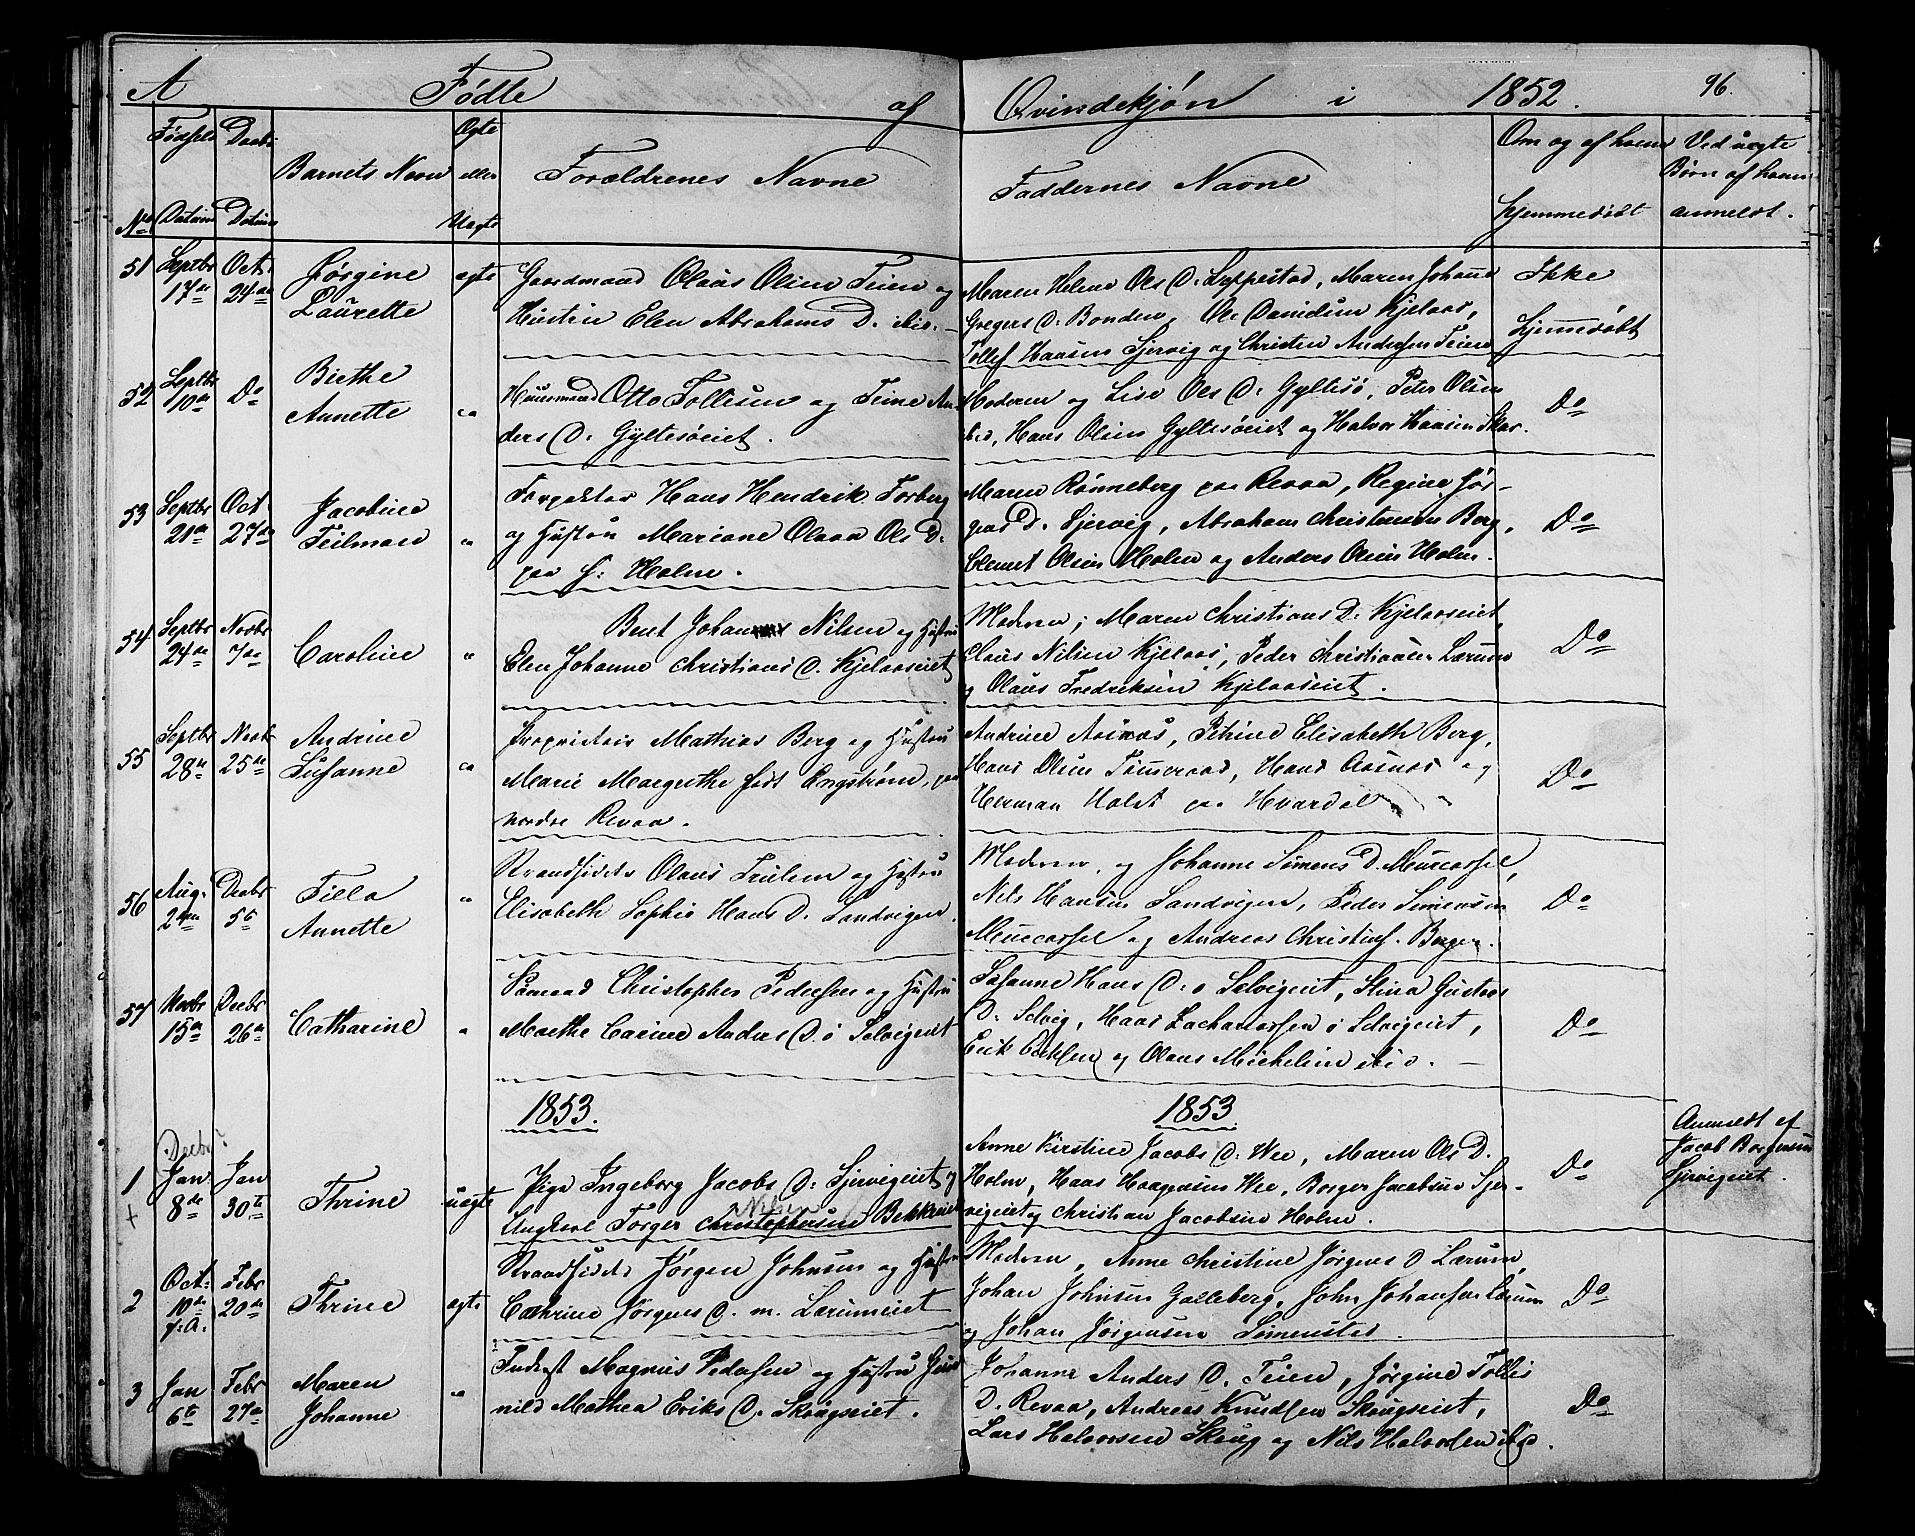 A Födte af Qvindekjøn i 1852. 96.
No Fødsels Datum Daabs Datum Barnets Navn Ægte eller Uægte Forældrenes Navne Faddernes Navne Om og af hvem hjemmedøbt Ved uægte Børn af hvem anmeldt.
51 Septbr 17de Oct. 24de Jørgine Laurette ægte
Gaardmand Olaus Olsen Teien og
Hustru Elen Abrahams D. ibid.
Maren Helene Ols D. Lyppestad, Maren Johanne
Gregers D. Bonden, Ole Davidsen Kjelaas,
Tollef Hansen Sjervig og Christen Andersen Teien
Ikke hjemmedøbt
52 Septbr 10de Do Birthe Annette "
Huusmand Otto Tollesen og Trine An
ders D. Gyltesøeiet.
Moderen og Lise Ols D. Gyltesø, Peter Olsen
ibid, Hans Olsen Gyltesøeiet og Halvor Hansen Skar.
Do
53 Septbr 21de Oct. 27de Jacobine Teilman "
Forpagter Hans Hendrik Forberg
og Hustru Mariane Olava Ols D.
paa s: Holm.
Maren Rønneberg paa Revaa, Regine Jør-
gens D. Sjervig, Abraham Christensen Berg,
Clemet Olsen Holm og Anders Olsen Holm.
Do
54 Septbr 24de Novbr 7de Caroline "
Bent Johan Nilsen og Hustru
Elen Johanne Christians D. Kjelaaseiet
Moderen, Maren Christians D. Kjelaaseiet,
Claus Nilsen Kjelaas, Peder Christiansen Lærum
og Olaus Fredriksen Kjelaaseiet.
Do
55 Septbr 28de Novbr 25de Andrine Susanne "
Proprietair Mathias Berg og Hustru
Marie Margrethe født Engstrøm, paa
nordre Revaa.
Andrine Aasnæs, Petrine Elisabeth Berg,
Hans Olsen Tømeraas, Hans Aasnæs og
Herman Holst paa Hvardal
Do
56 Aug. 24de Decbr 5te Tilla Annette "
Strandsidder Olaus Trulsen og Hustru
Elisabeth Sophie Hans D. Sandvigen.
Moderen, og Johanne Simens D. Meurcassel,
Nils Hansen Sandvigen, Peder Simensen
Meurcassel og Andreas Christens. Berger.
Do
57 Novbr 15de Decbr 26de Catharine "
Sømand Christopher Pedersen og Hustru
Marthe Carine Anders D. i Selvigeiet
Susanne Hans D. i Selvigeiet, Stina Gustavs
D. Selvig, Hans Zachariassen i Selvigeiet,
Erik Eriksen og Olaus Mickelsen ibid.
Do
1853. 1853
1 + Decbr? Jan 8de Jan 30te Thrine uægte
Pige Ingeborg Jacobs D. Sjervigeiet og
Nilsen
Ungkarl Torger Christophersen Bekkeiet
Anne Kirstine Jacobs D. Wee, Maren Ols D.
Holm, Hans Haagensen Wee, Borger Jacobsen Sjer-
vigeiet og Christian Jacobsen Holm.
Do
Anmeldt af
Jacob Borgersen
Sjervigeiet.
2 Oct. 10de f. A. Febr 20de Thrine ægte
Strandsidder Jørgen Johnsen og Hustru
Cathrine Jørgens D. m. Lærumeiet
Moderen, Anne Christine Jørgens D Lærum,
Johan Johnsen Galleberg, John Johansen Lærum
og Johan Jørgensen Sømenstes.
Do
3 Jan 6te Febr 27de Maren Johanne "
Inderst Magnus Pedersen og Hustru Gun
nild Mathea Eriks D. Skougseiet.
Johanne Anders D. Teien, Jørgine Tollis
D. Revaa, Andreas Knudsen Skougseiet,
Lars Halvorsen Skoug og Nils Halvorsen ibid.
Do